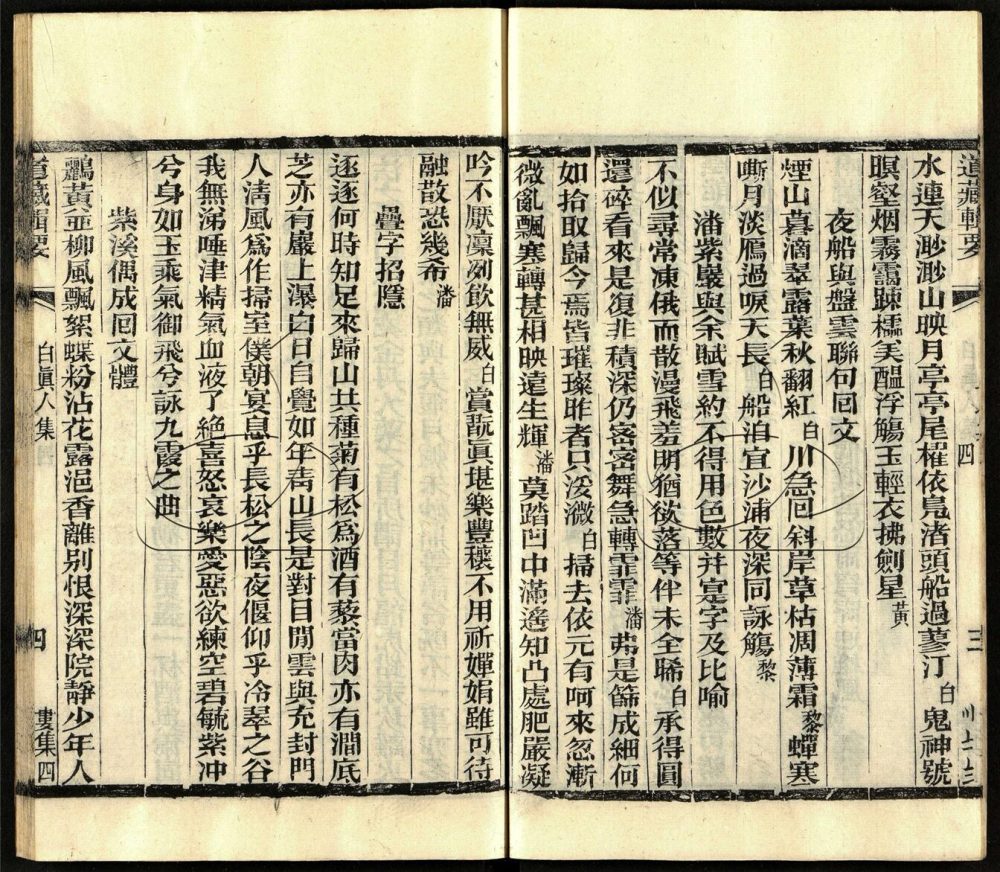 道藏輯要
水連天渺渺山映月亭亭尾櫂依鳧渚頭船過蓼汀白鬼神號
暝壑烟霧靄踈櫺美醞浮觴玉輕衣拂劍星黃
夜船與盤雲聯句回文
煙山暮滴翠露葉秋翻紅白川急回斜岸草枯凋薄霜黎蟬寒
嘶月淡鴈過唳天長白船泊宜沙浦夜深同詠觴黎
潘紫巖與余賦雪約不得用色數并寔字及比喻
不似尋常凍俄而散漫飛羞明猶欲落等伴未全晞白承得圓
還碎看來是復非積深仍密密舞急轉霏霏潘弗是篩成細何
如拾取歸今焉皆璀璨昨者只溦溦白掃去依元有呵來忽漸
微亂飄寒轉甚相映遠生輝潘莫踏凹中滿遙知凸處肥嚴凝
吟不厭凜冽飲無威白賞翫眞堪樂豐穰不用祈嬋娟雖可待
融散恐幾希潘
疊字招隱
逐逐何時知足來歸山共種菊有松爲酒有藜當肉亦有澗底
芝亦有巖上瀑白日自覺如年青山長是對目閒雲與充封門
人清風爲作掃室僕朝宴息乎長松之陰夜偃仰乎冷翠之谷
我無涕唾津精氣血液了絶喜怒哀樂愛惡欲練空碧毓紫冲
兮身如玉乘氣御飛兮詠九霞之曲
紫溪偶成回文體
鸝黃並柳風飄絮蝶粉沾花露浥香離別恨深深院靜少年人
道藏輯要
白眞人集四
四
婁集四